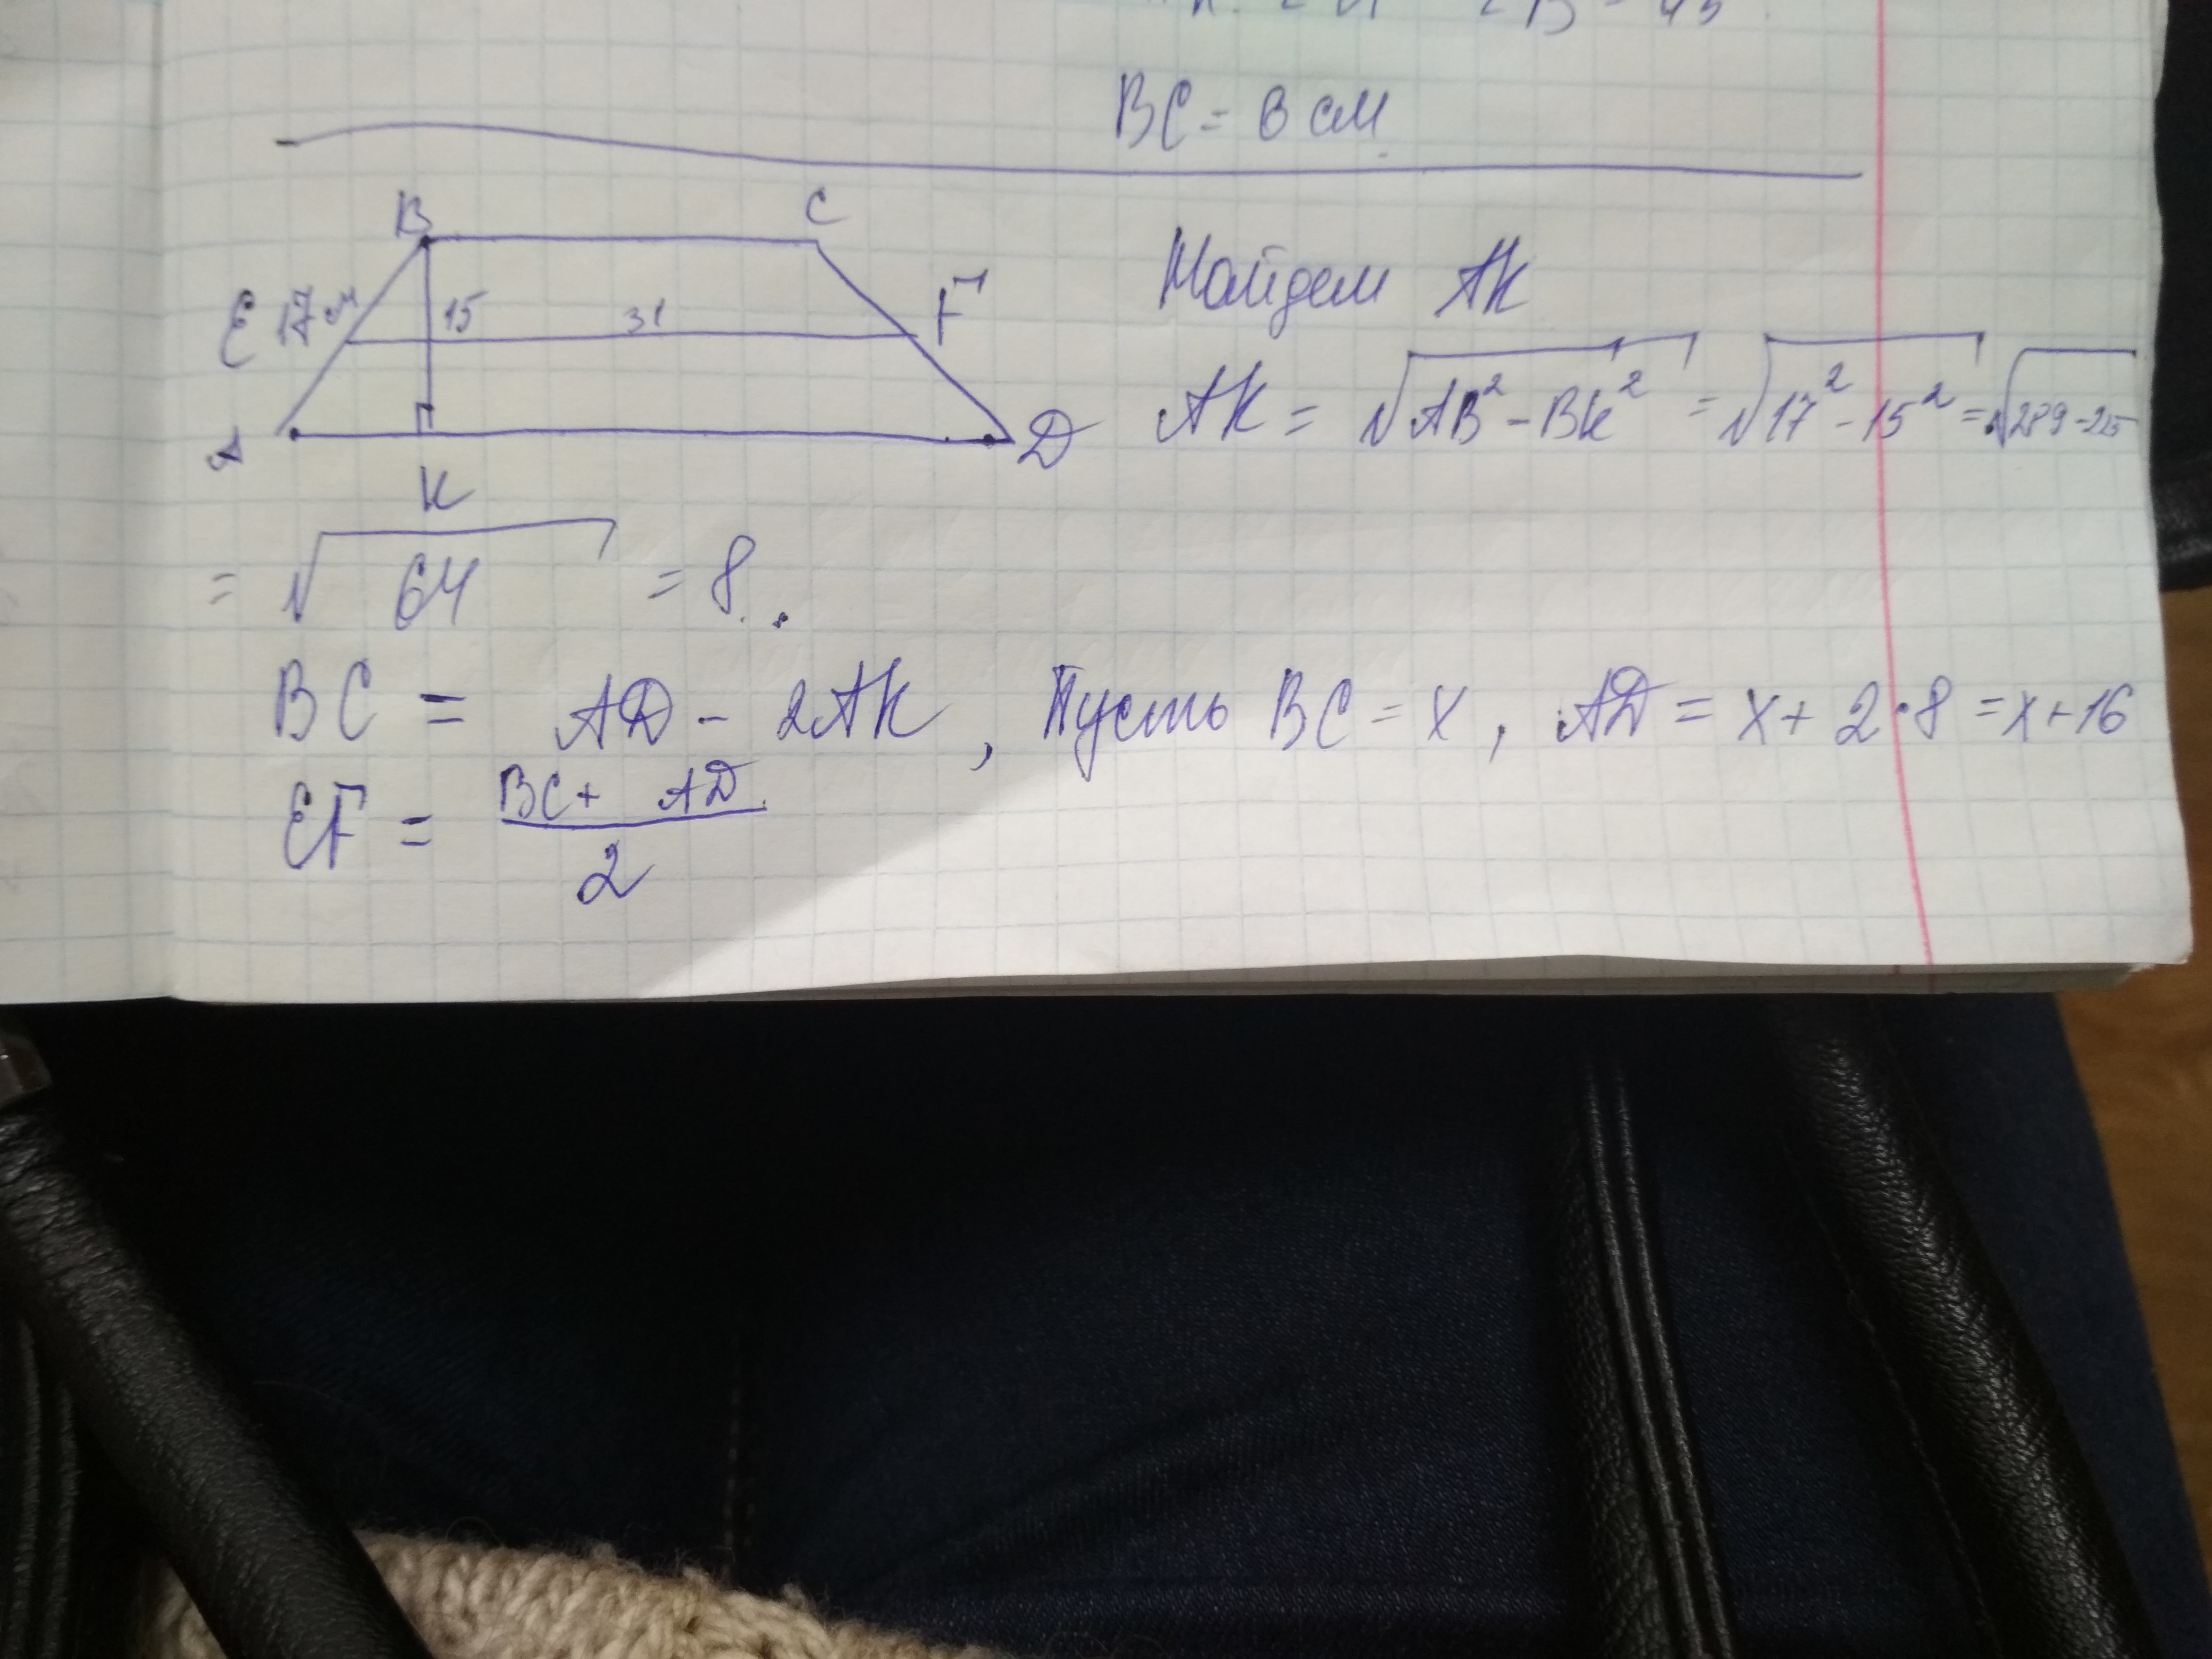 BC = 8 см
B C
E 17 см 15 31 F
A D
K
Найдем AK
AK = √AB² - BK² = √17² - 15² = √289 - 225
= √64 = 8.
BC = AD - 2AK, Пусть BC = x, AD = x + 2·8 = x + 16
EF = BC + AD / 2